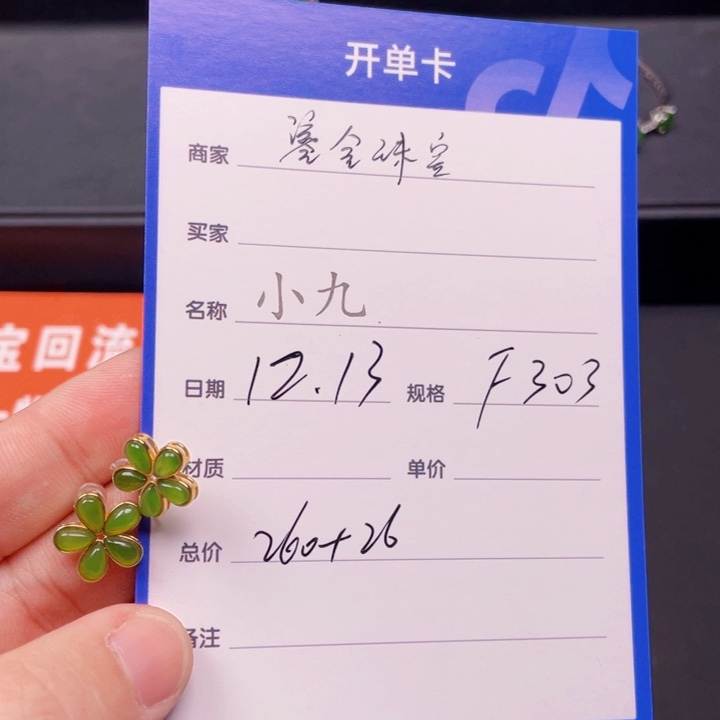 开单卡
商家 鎏金珠宝
买家
名称 小九
日期 12.13 规格 F303
材质 单价
总价 260+26
备注
宝回流